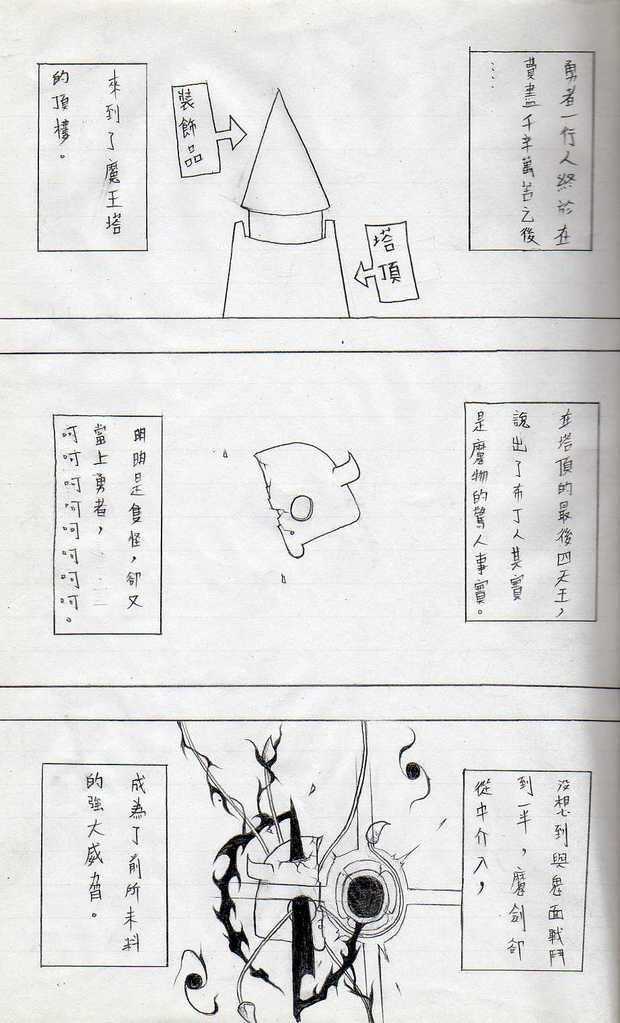 勇者一行人終於在
費盡千辛萬苦之後
……
裝飾品
塔頂
來到了魔王塔
的頂樓。
在塔頂的最後四天王，
說出了布丁人其實
是魔物的驚人事實。
明明是隻怪，卻又
當上勇者，
呵呵呵呵呵呵呵。
沒想到與鬼面戰鬥
到一半，魔劍卻
從中介入，
成為了前所未料
的強大威脅。